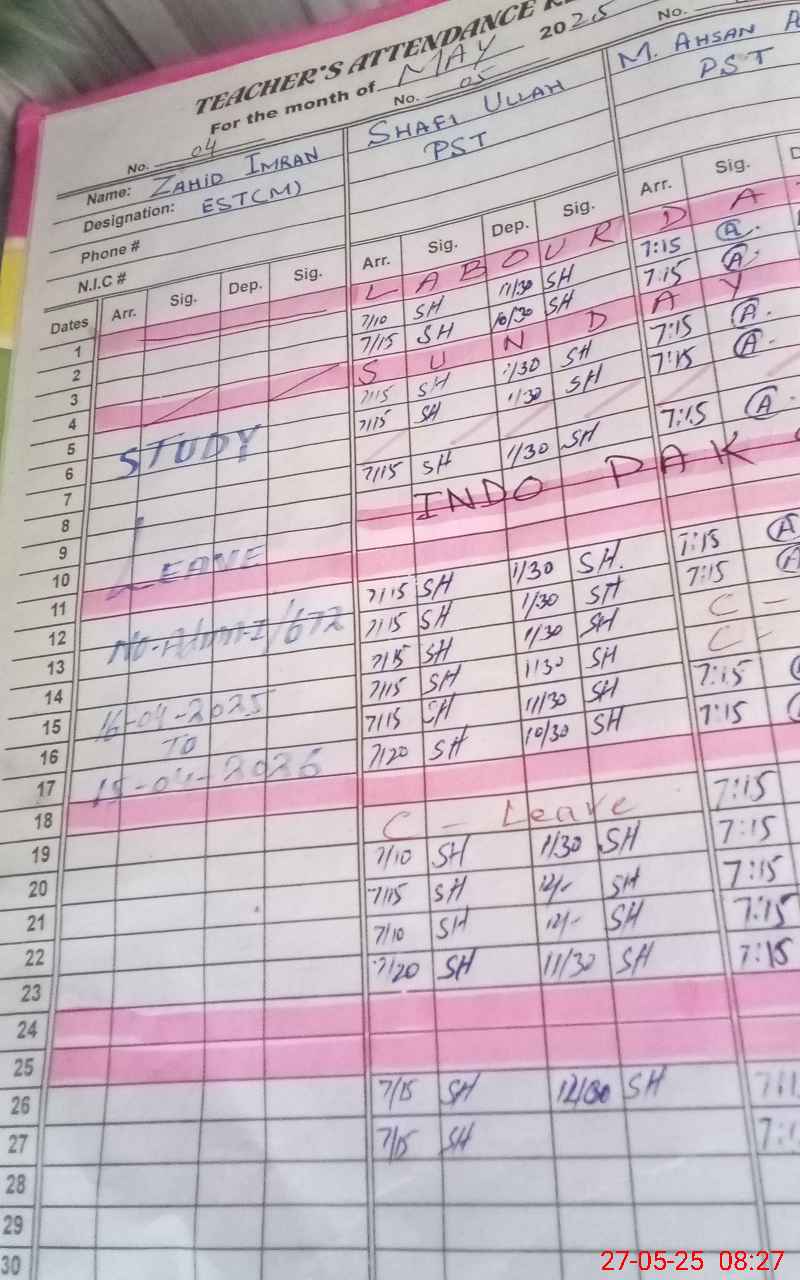 TEACHER'S ATTENDANCE
For the month of MAY 2025
No. 04 No. 05 No.
Name: ZAHID IMRAN SHAFI ULLAH M. AHSAN A
Designation: EST(M) PST PST
Phone #
N.I.C #
Dates Arr. Sig. Dep. Sig. Arr. Sig. Dep. Sig. Arr. Sig. D
1 LABOUR DA
2 7/10 SH 11/30 SH 7:15 A
3 7/15 SH 10/30 SH 7:15 A
4 SUNDAY
5 7/15 SH 1/30 SH 7:15 A
6 7/15 SH 1/30 SH 7:15 A
STUDY
7
8 7/15 SH 1/30 SH 7:15 A
9 INDO PAK
LEAVE
10
11
12 7/15 SH 1/30 SH 7:15 A
No. /672
13 7/15 SH 1/30 SH 7:15 A
14 7/15 SH 1/30 SH C -
15 7/15 SH 1130 SH C -
16-04-2025
16 7/15 SH 11/30 SH 7:15
TO
17 7/20 SH 10/30 SH 7:15
15-04-2026
18
19 C - Leave 7:15
20 7/10 SH 1/30 SH 7:15
21 7/15 SH 12/- SH 7:15
22 7/10 SH 12/- SH 7:15
23 7/20 SH 11/30 SH 7:15
24
25
26 7/15 SH 12/30 SH
27 7/15 SH
28
29
30
27-05-25 08:27